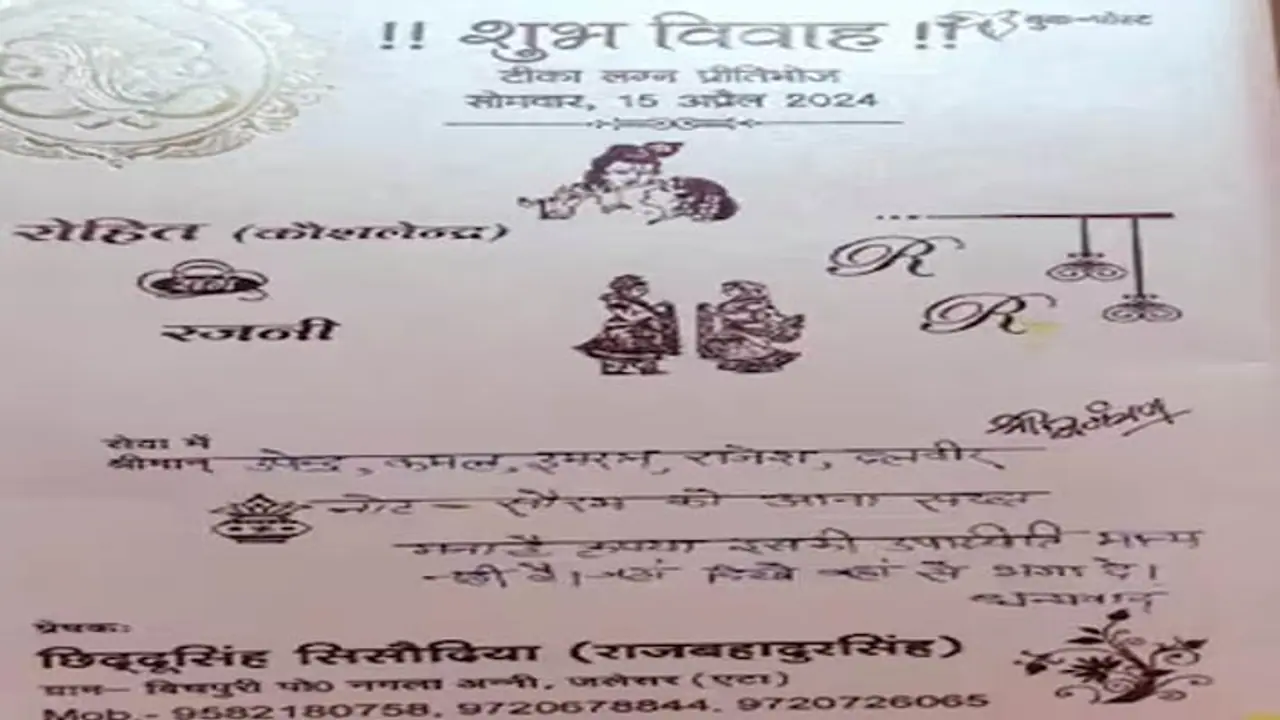 !! शुभ विवाह !!
बुक-पोस्ट
टीका लग्न प्रीतिभोज
सोमवार, 15 अप्रैल 2024
रोहित (कौशलेन्द्र)
संग
रजनी
R
R
श्री निमंत्रण
सेवा में
श्रीमान् उपेन्द्र, कमल, इमरान, राजेश, बलवीर
नोट - सौरभ को आना सख्त
मना है कृपया इसकी उपस्थिति मान्य
नहीं है। जहां दिखे वहां से भगा दे।
धन्यवाद
प्रेषक:
छिद्दूसिंह सिसौदिया (राजबहादुरसिंह)
ग्राम- विचपुरी पो० नगला अन्नी, जलेसर (एटा)
Mob.- 9582180758, 9720678844, 9720726065